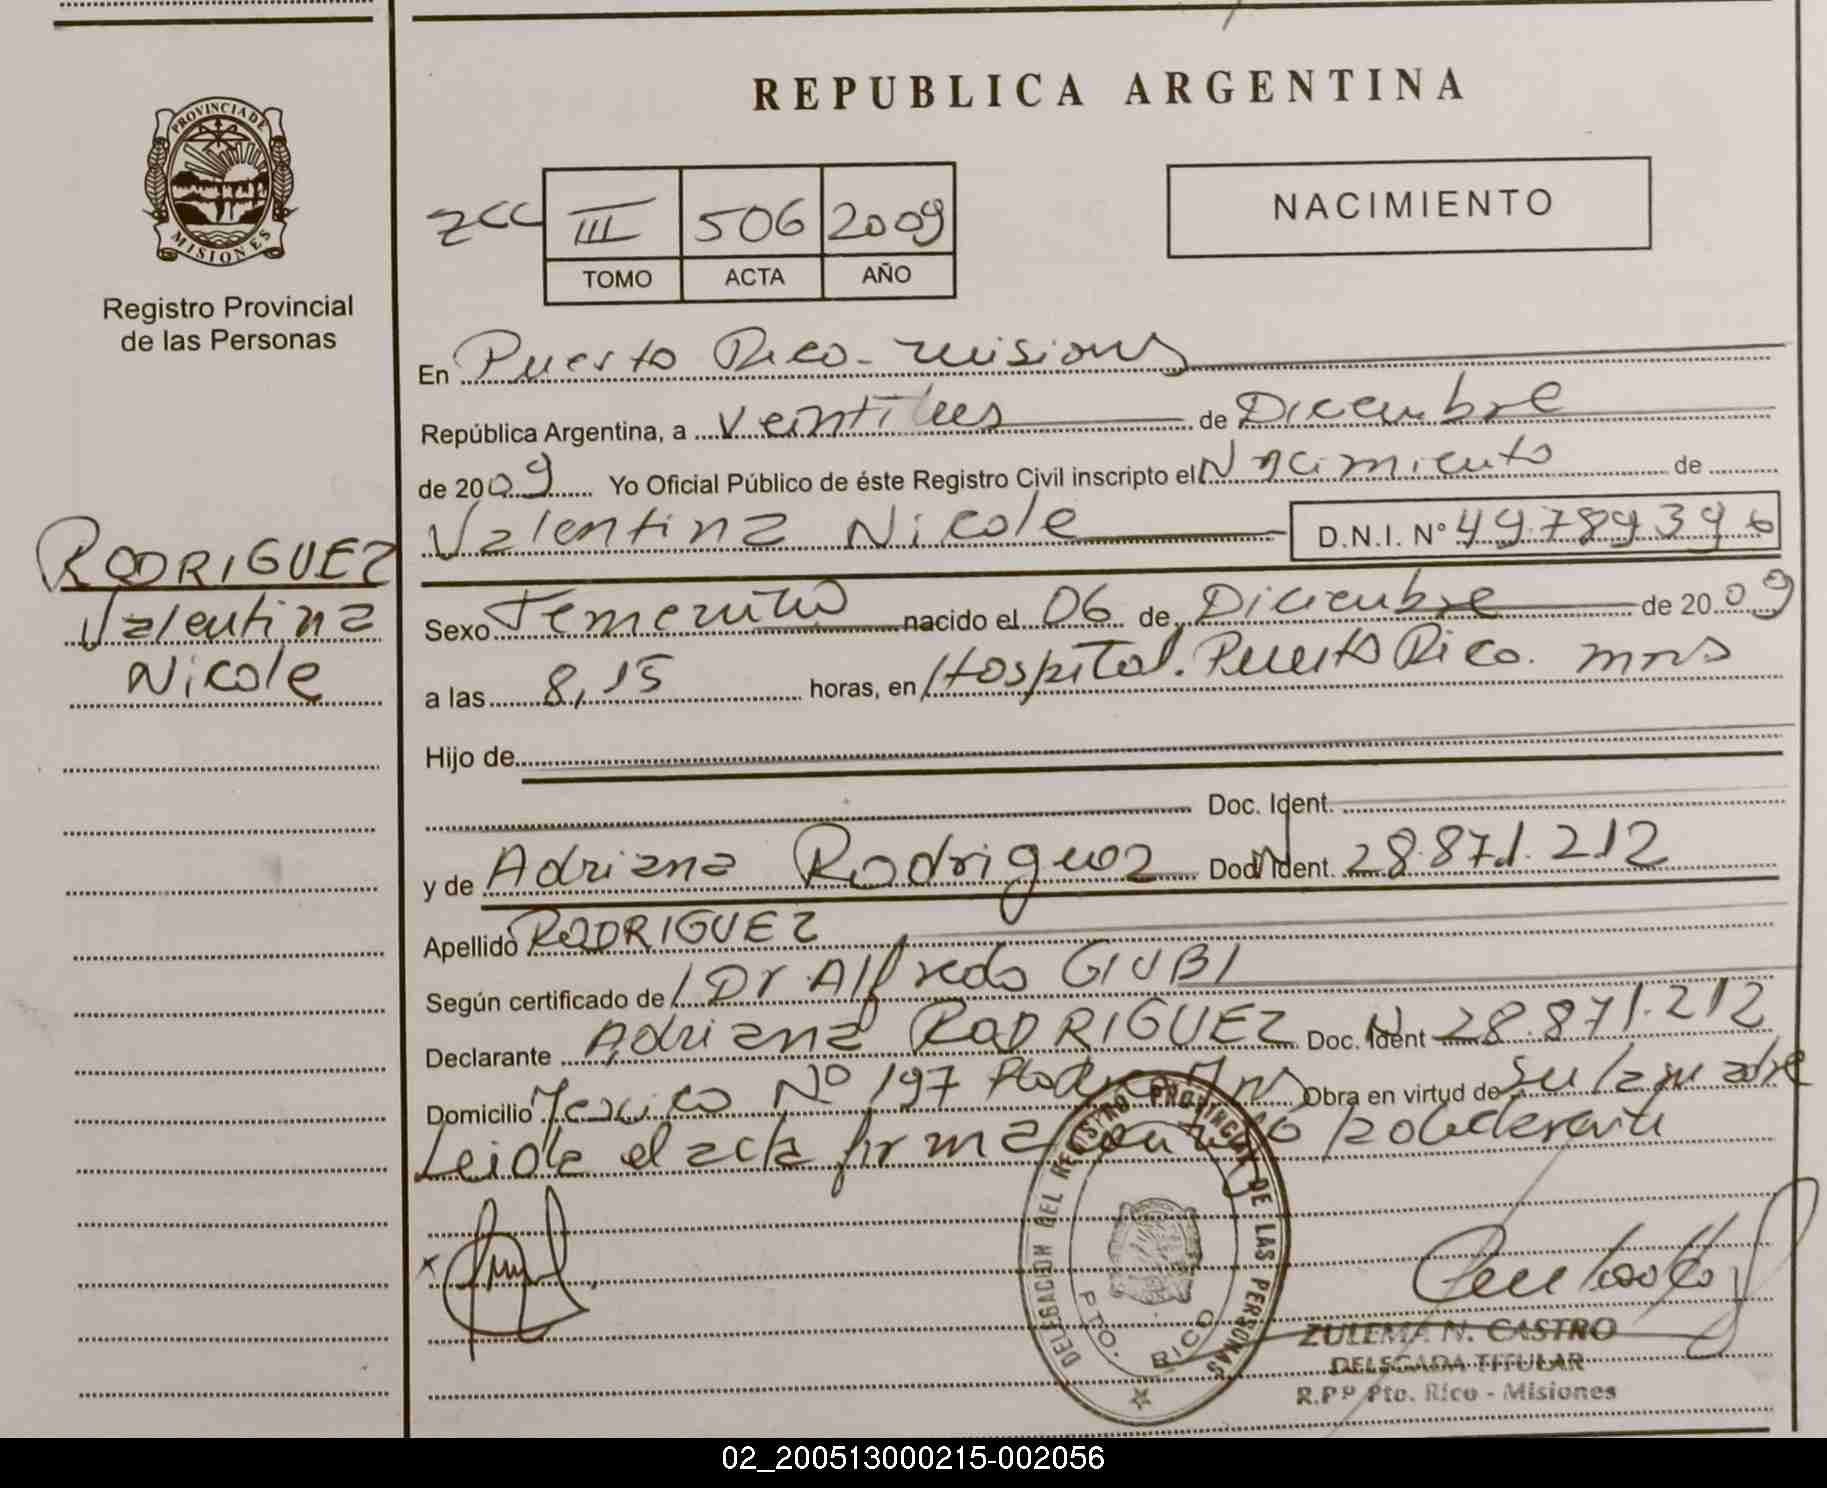 REPUBLICA ARGENTINA
PROVINCIA DE
MISIONES
Registro Provincial
de las Personas
III 506 2009
TOMO ACTA AÑO
NACIMIENTO
En Puerto Rico - misiones
República Argentina, a veintitres de Diciembre
de 2009 Yo Oficial Público de éste Registro Civil inscripto el Nacimiento de
Valentina Nicole D.N.I. N° 49.789.396
RODRIGUEZ
Valentina
Nicole
Sexo Femenino nacido el 06 de Diciembre de 2009
a las 8,15 horas, en Hospital. Puerto Rico. mns
Hijo de
Doc. Ident.
y de Adriana Rodriguez Doc. Ident. 28.871.212
Apellido RODRIGUEZ
Según certificado de Dr Alfredo GIUBI
Declarante Adriana RODRIGUEZ Doc. Ident 28.871.212
Domicilio Nº 197 Obra en virtud de su la madre
Leida el acta firma
DELEGACION DEL REGISTRO PROVINCIAL DE LAS PERSONAS
PTO. RICO
ZULEMA N. CASTRO
DELEGADA TITULAR
R.P.P Pto. Rico - Misiones
02_200513000215-002056